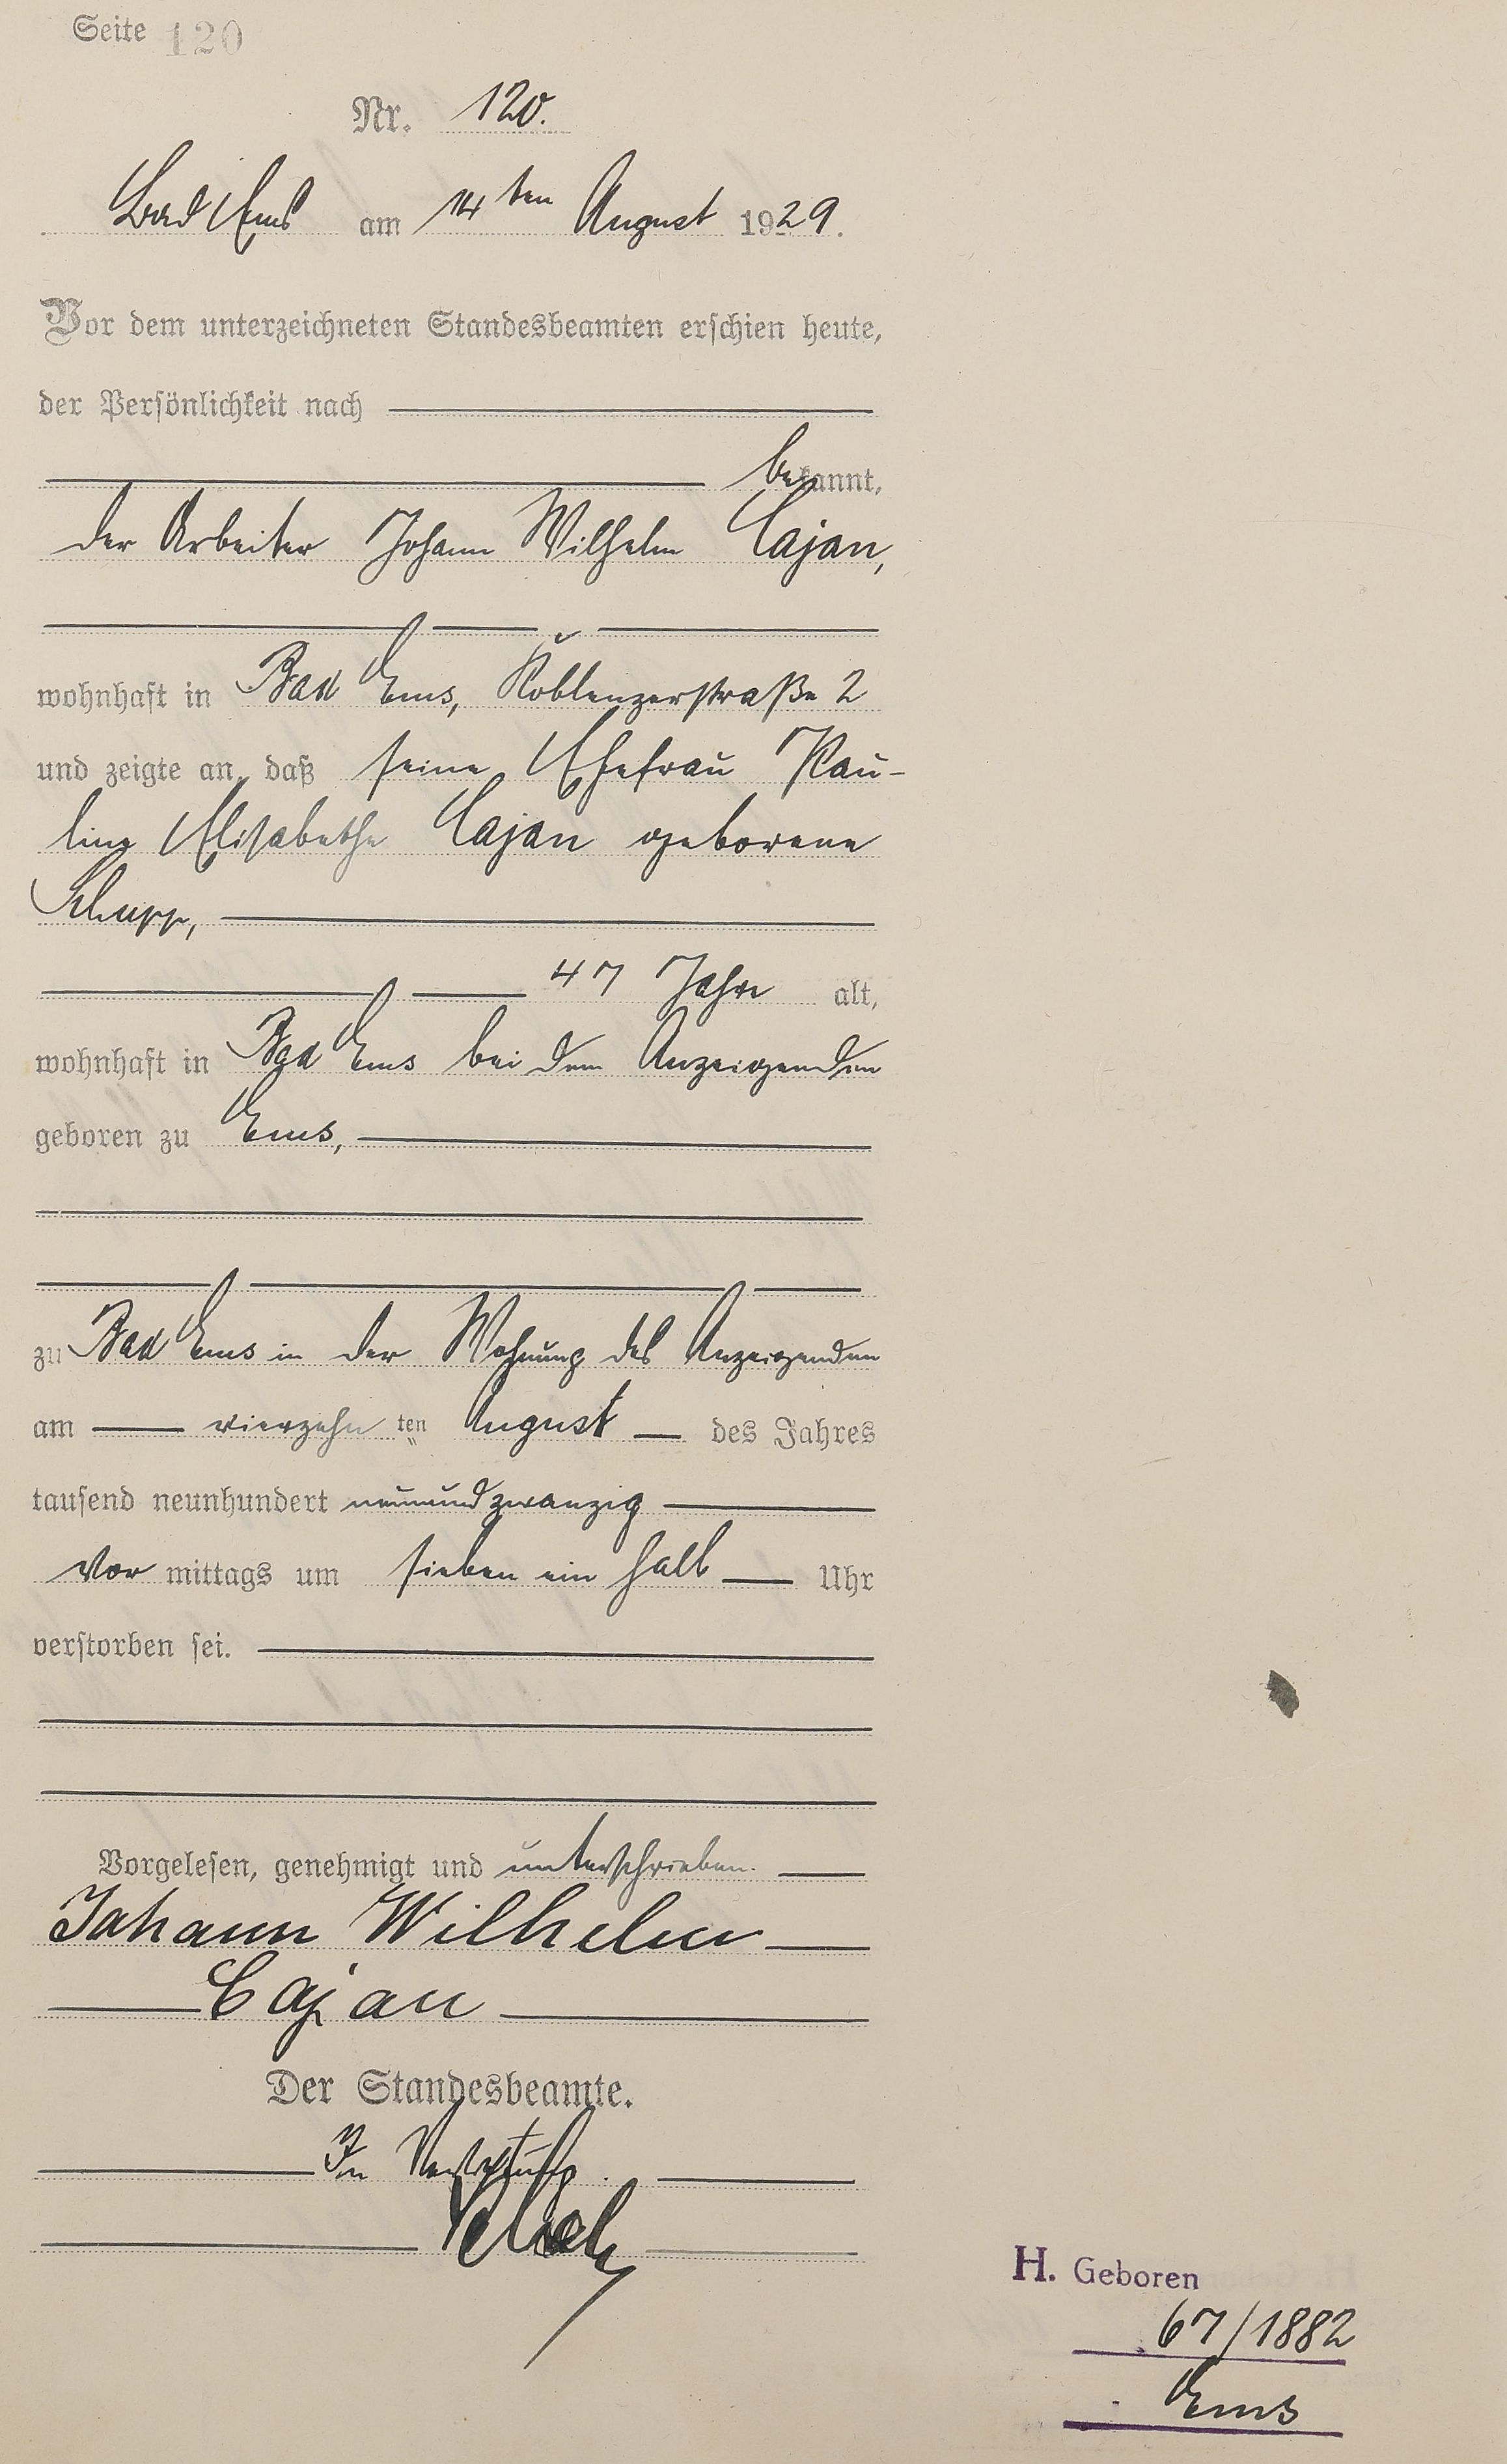 Seite 120
Nr. 120.
Bad Ems am 14ten August 1929.
Vor dem unterzeichneten Standesbeamten erschien heute,
der Persönlichkeit nach
bekannt,
der Arbeiter Johann Wilhelm Cajan,
wohnhaft in Bad Ems, Koblenzerstraße 2
und zeigte an, daß seine Ehefrau Pau-
line Elisabethe Cajan geborene
Schupp,
47 Jahre alt,
wohnhaft in Bad Ems bei dem Anzeigenden
geboren zu Ems,
zu Bad Ems in der Wohnung des Anzeigenden
am vierzehnten August des Jahres
tausend neunhundert neunundzwanzig
Vormittags um sieben ein halb Uhr
verstorben sei.
Vorgelesen, genehmigt und unterschrieben.
Johann Wilhelm
Cajan
Der Standesbeamte.
In Vertretung.
H. Geboren
67/1882
Ems